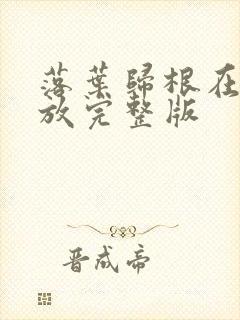 落葉歸根在
放完整版
晋成帝